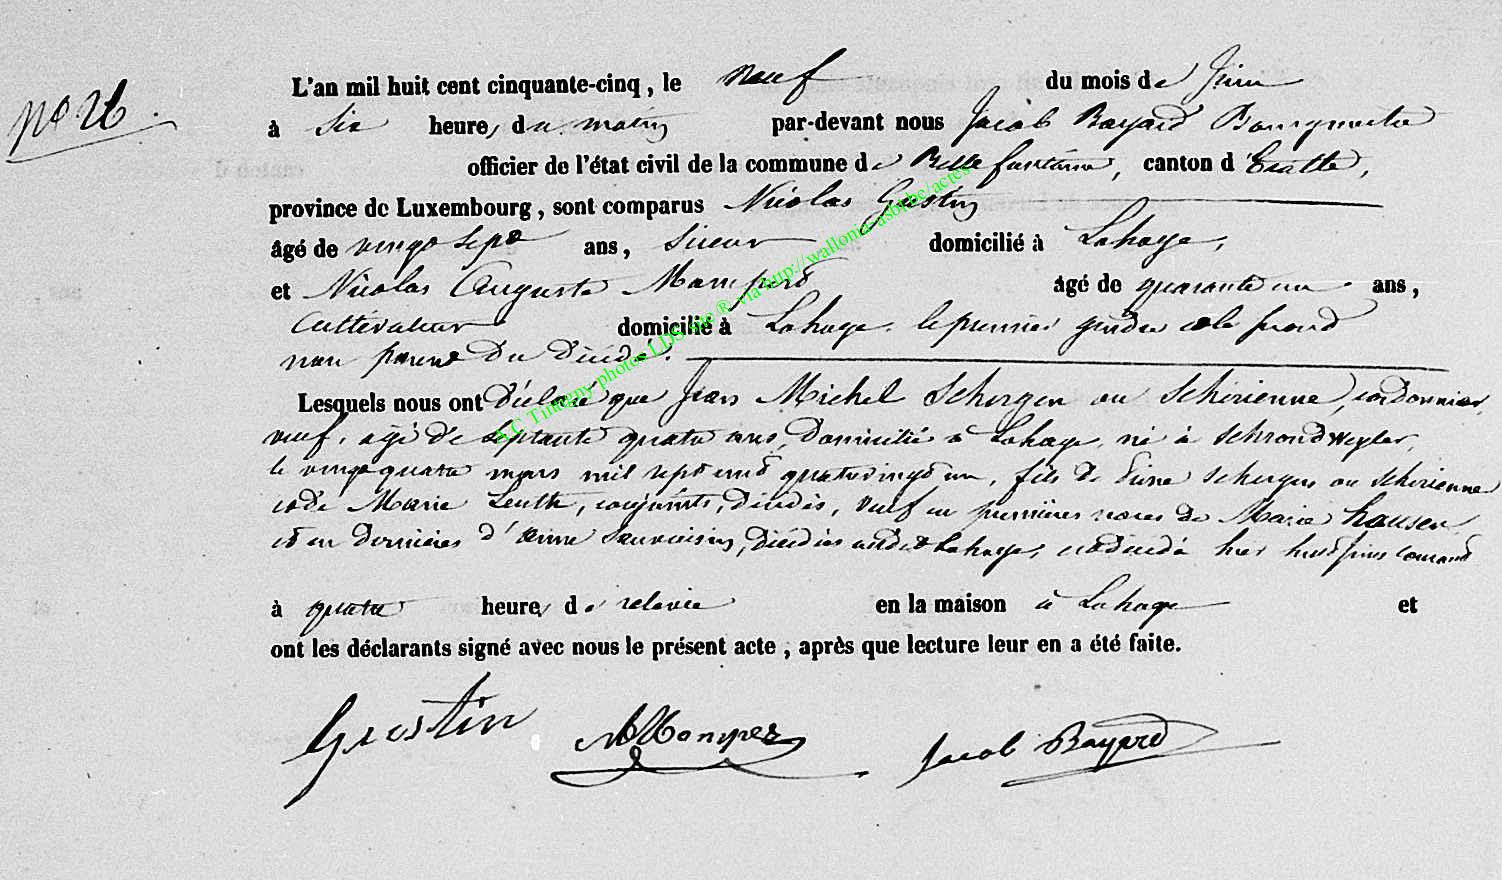 N° 26.
L'an mil huit cent cinquante-cinq, le neuf du mois de Juin
à six heures du matin par-devant nous Jacob Bayard Bourgmestre
officier de l'état civil de la commune de Bellefontaine, canton d'Etalle,
province de Luxembourg, sont comparus Nicolas Gustin
âgé de vingt sept ans, scieur domicilié à Lahage,
et Nicolas Auguste Manuperd âgé de quarante un ans,
cultivateur domicilié à Lahage, le premier gendre et le second
non parent du décédé.
Lesquels nous ont déclaré que Jean Michel Schergen ou Schérienne, cordonnier,
veuf, agé de septante quatre ans, domicilié à Lahage, né à Schrondweyler,
le vingt quatre mars mil sept cent quatrevingt un, fils de Pierre Schergen ou Schérienne
et de Marie Leuth, conjoints, décédés, veuf en premières noces de Marie Hausen
et en dernières d'Anne Sauvoisin, décédées audit Lahage, est décédé hier huit juin courant
à quatre heures de relevée en la maison à Lahage et
ont les déclarants signé avec nous le présent acte, après que lecture leur en a été faite.
Gustin Jacob Bayard
A.C Tintigny photos LDS site ® via http://wallonia-asbl.be/actes